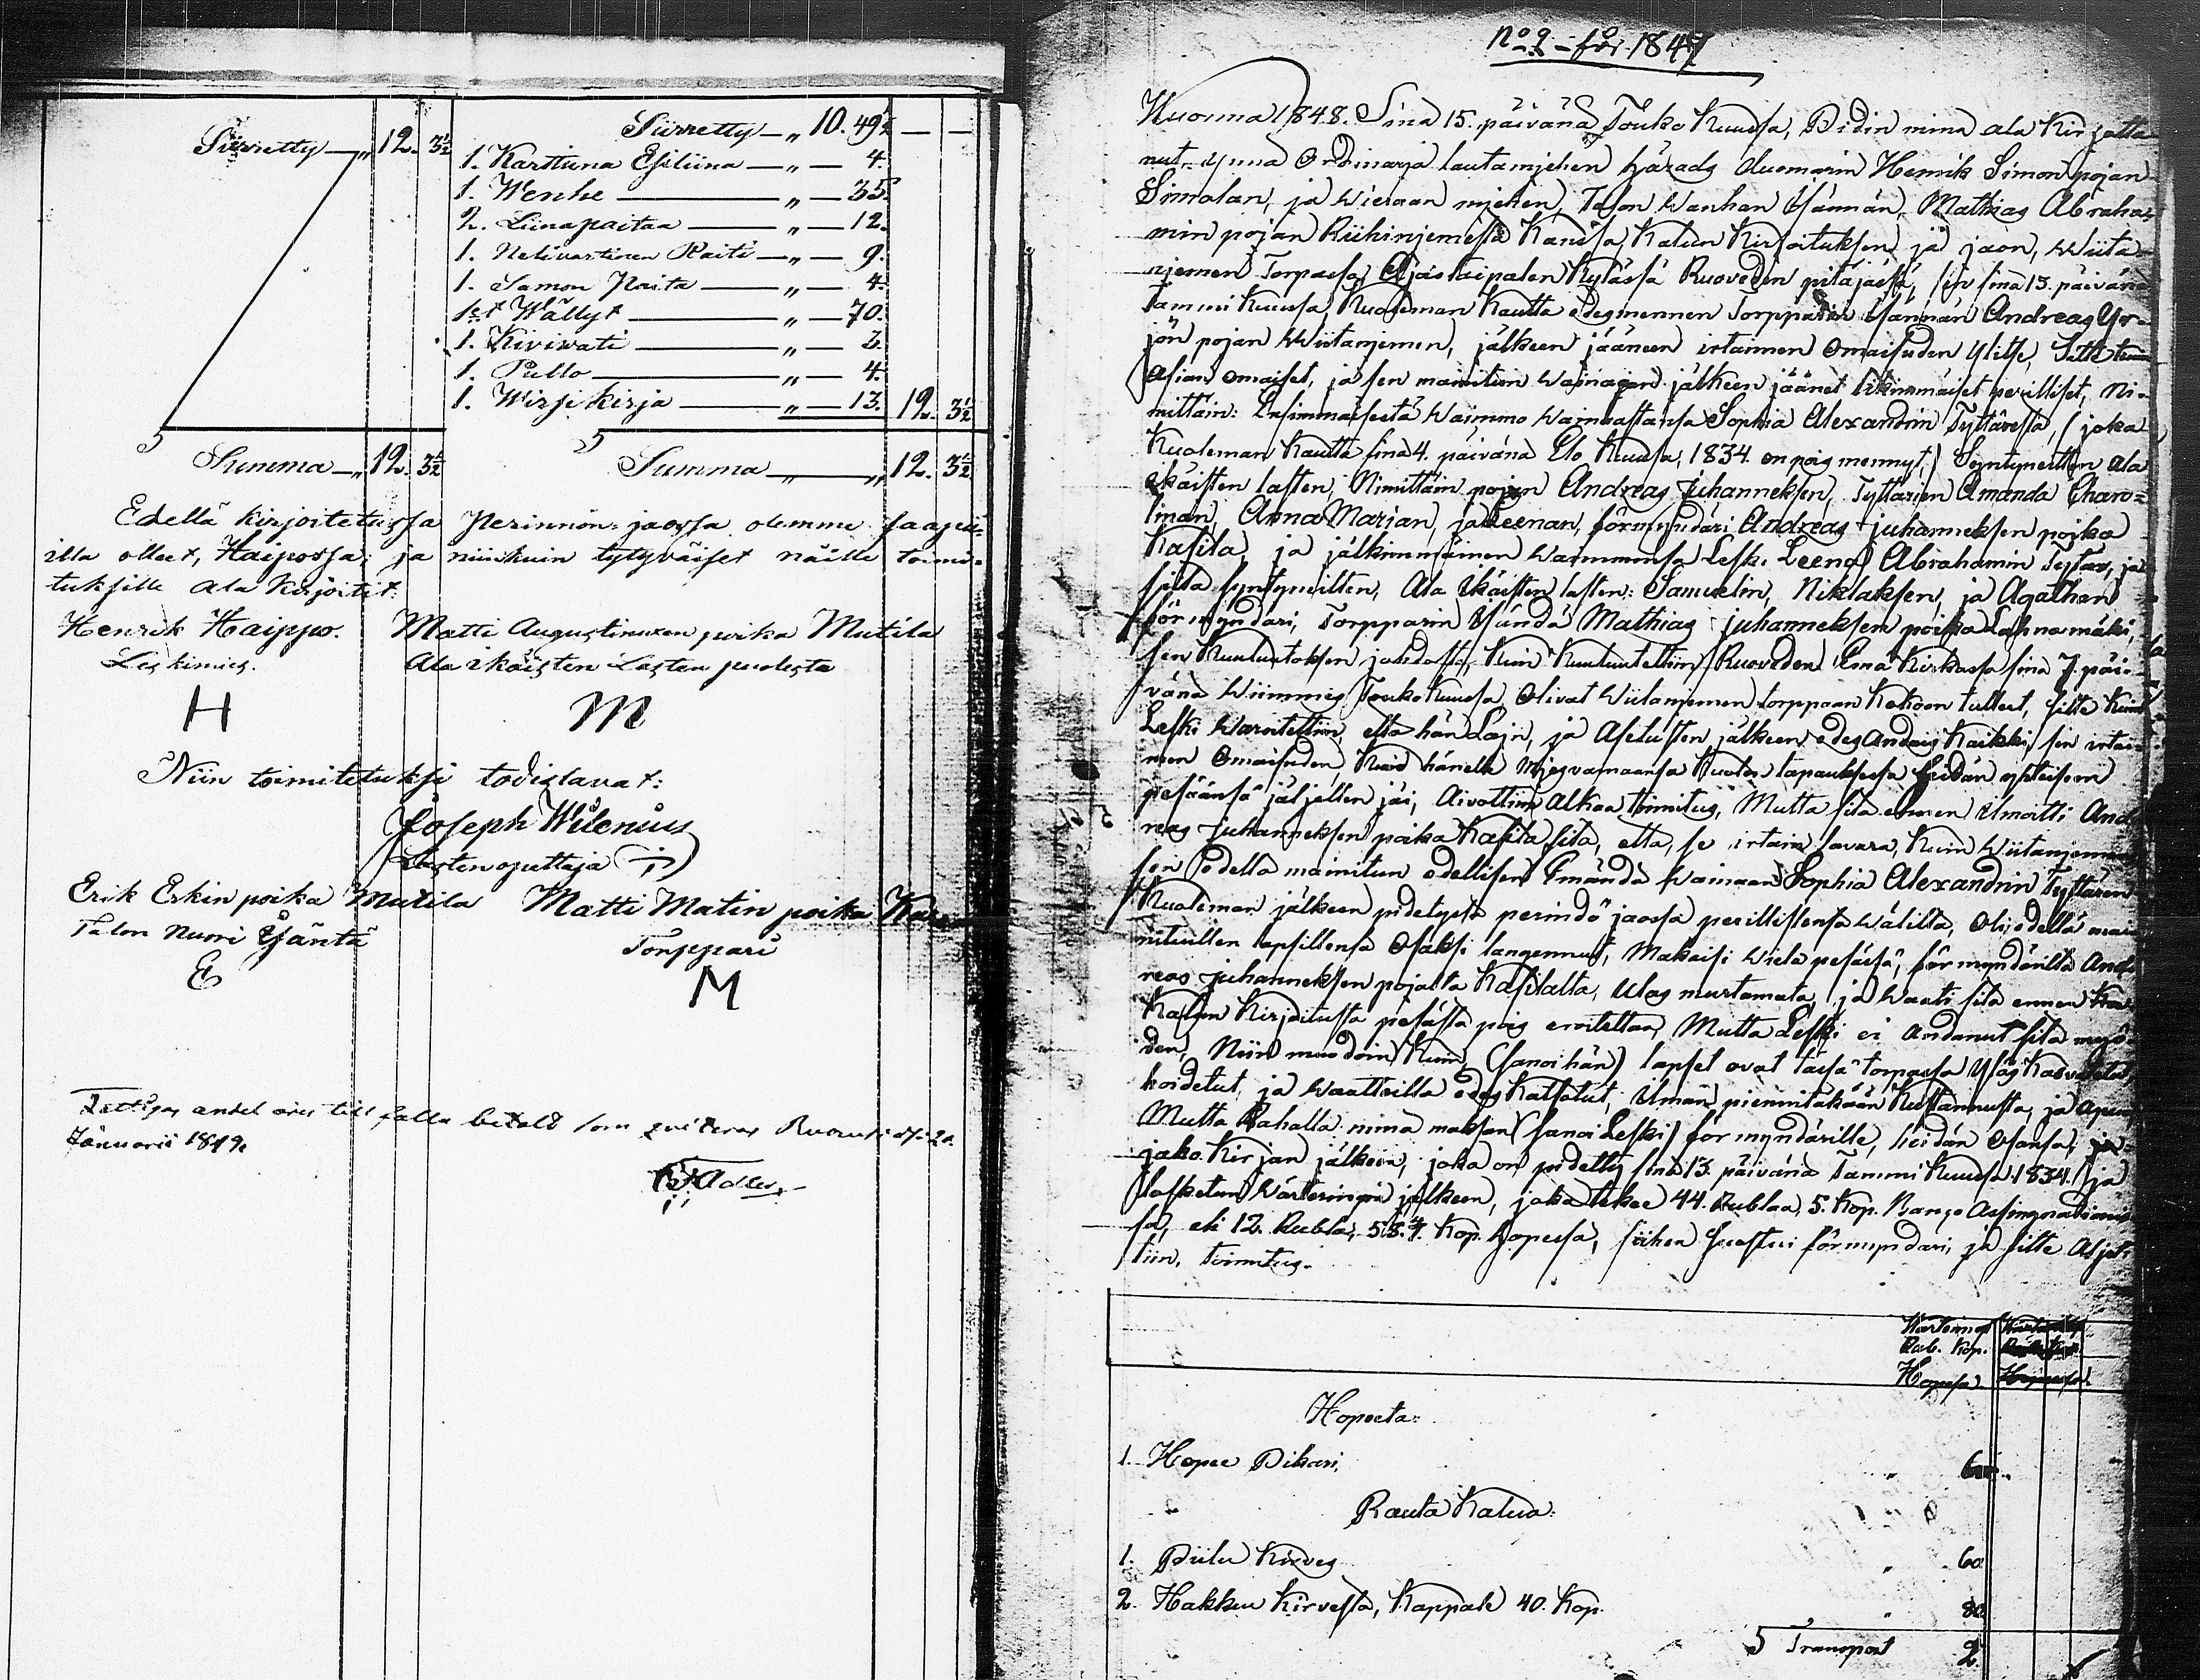 Siirretty — „ 12. 3½
Siirretty — „ 10. 49½ — —
1. Karttuna Esiliina — „ — 4.
1. Wenhe — „ — 35.
2. Liinapaitaa — „ — 12.
1. Nelivartinen Raiti — „ — 9.
1. Samon Paita — „ — 4.
1st Wällyt — „ — 70.
1. Kiviwati — „ — 3.
1. Pullo — „ — 4.
1. Wirsikirja — „ — 13. 12. 3½
Summa — „ 12. 3½
Summa — „ 12. 3½
Edellä kirjoitetussa Perinnön-jaossa olemme saapu-
illa olleet, Haipossa; ja niinkuin tytyväiset näille toimi-
tuksille ala Kirjoitit.
Henrik Haippo.
Leskimies.
H
Matti Augustinuxen poika Mutila
Ala ikäisten Lasten puolesta
M
Niin toimitetuksi todistavat:
Joseph Wilenius
Lasten opettaja
Erik Erkin poika Mutila
Talon Nuori Isäntä
E
Matti Matin poika
Torppari
M
Fattigas andel är till fulla betald som qvitteras Ruovesi d. 20
Januarii 1849.
Adler
No 9 - för 1847
Wuonna 1848. Sinä 15. päivänä Touko Kuussa, Pidin minä ala Kirjotta
nut ynnä Ordinarja lautamjehen härads duomarin Henrik Simon pojan
Simolan, ja Wieraan mjehen, Talon Wanhan Isännän, Mathias Abraha-
min pojan Riihinjemestä Kansa, Kalun Kirjoituksen ja jaon, Wiita-
njemen Torpassa, Ajostaipalen Kylässä Ruoveden pitäjässä, sen sinä 13. päivänä
Tammi Kuussa, Kuoleman Kautta edesmennen Torpparin Isännän Andreas Yr-
jön pojan Wiitanjemen, jälkeen jääneen irtaimen Omaisuden Ylitse, Sitte
Asian omaiset, ja sen mainitun Wainajan jälkeen jäänet likimmäiset perilliset, Ni-
mittäin: Ensimmäisestä Waimmo Wainaastansa Sophia Alexandrin Tyttärestä, (joka
Kuoleman Kautta sinä 4. päivänä Elo Kuussa, 1834. on pois mennyt,) Syntyneitten ala
ikäisten lasten, Nimittäin pojan Andreas Juhanneksen, Tyttärien Amanda Charo-
linan, Anna Marian, ja Leenan, förmyndäri Andreas Juhanneksen poika
Kasila, ja jälkimmäinen Waimmonsa Leski Leena Abrahamin Tytär, ja
siitä syntyneitten, Ala ikäisten lasten: Samuelin, Niklaksen, ja Agathan
förmyndäri, Torpparin Isändä Mathias Juhanneksen poika Lahnamäki,
sen Kuulutoksen johdosta, Kuin Kuulutettiin Ruoveden Emä Kirkossa sinä 7. päi-
vänä Wiimmes Touko Kuussa, Olivat Wiitanjemen torppaan Kokoon tulleet, sitte Kuin
Leski Waroitettiin, että hän Lajn, ja Asetusten jälkeen edes Andais Kaikki, sen irtai-
men Omaisuden, Kuin hänellä Mjesvainaansa Kuolon tapauksessa heidän ychteisen
pesäänsä jäljellen jäi, Aivottiin alkaa toimitus, Mutta sitä ennen ilmoitti And-
reas Juhanneksen poika Kasila sitä, että, se irtain tavara, Kuin Wiitanjemen
sen edellä mainitun edellisen Emändä Wainaan Sophia Alexandrin Tyttären
Kuoleman jälkeen pidetyssä perindö jaossa perillistensä Wälillä, Oli edellä mai-
nituillen lapsillensa Osaksi langennut, Makaisi Wielä pesässä, förmyndäriltä And-
reas Juhanneksen pojalta Kasilalta, Ulos murtamata, ja Waati sitä ennen
Kalun Kirjoitusta pesästä pois eroitettaa, Mutta Leski ei Andanut sitä myö-
den, Niin muodoin Kuin, (sanoi hän) lapset ovat tässä torpassa Ylös Kasvatetut,
hoidetut, ja Waatteilla edes Katsotut, Ilman pienintäkään Kustannusta, ja apua,
Mutta Rahalla minä maksan (sanoi Leski) förmyndärille, heidän Osansa,
jako Kirjan jälkeen, joka on pidetty sinä 13. päivänä Tammi Kuussa 1834. ja
lasketun Wärteringin jälkeen, joka tekee 44. Rublaa, 5. Kop. Banco Assingnationi-
sa, eli 12. Rubla, 58 4/7. Kop. Hopessa, siihen suostui förmyndäri, ja sitte Aljet-
tiin, toimitus.
Wärteringi
Rub. Kop.
Hopessa.
Hopeeta:
1. Hopee Pikari, „ 60.
Rauta Kalua:
1. Piilu Kirves „ 60
2. Hakkuu Kirvestä, Kappale 40. Kop. „ 80
Transport 2.